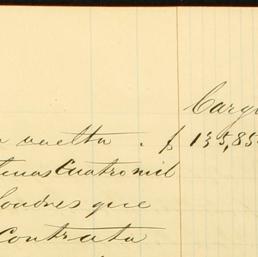 Carg
a vuelta . $ 135,85
tenas Cuatro mil
Londres que
Contrata